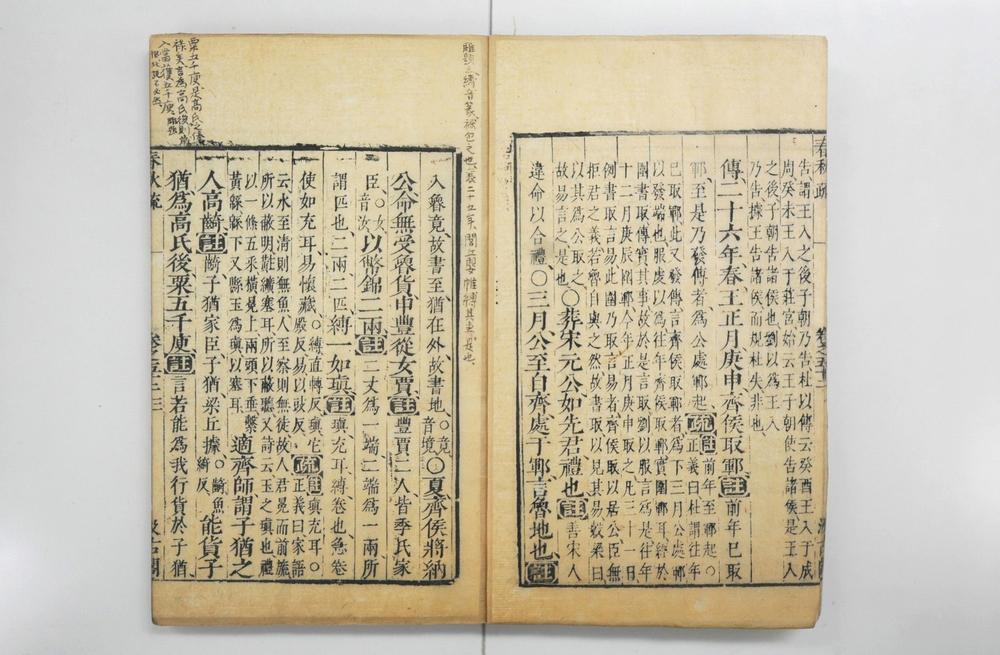 春秋疏
告謂王入之後子朝乃告杜以傳云癸酉王入于成
周癸未王入于莊宮始云王子朝使告諸侯是王入
之後子朝告諸侯也劉以為王入
乃告據王告諸侯而規杜失非也
傳二十六年春王正月庚申齊侯取鄆註前年已取
鄆至是乃發傳者為公處鄆起疏註前年至鄆起○正義曰杜謂往年
已取鄆此又發傳言齊侯取鄆者為下三月公處鄆
以發端也服虔以為往年齊侯取鄆實圍鄆耳經於
圍書取傳實其事故於是言取劉以服言為是往年
十二月庚辰圍鄆今年正月庚申取之凡三十一日
例書取言易也此圍乃取言易者齊侯取以居公臣無
拒君之義若魯自與之然故書取以見其易穀梁曰
以其為公取之故易言之是也○葬宋元公如先君禮也註善宋人
違命以合禮○三月公至自齊處于鄆言魯地也註
縛音篆
包之也襄二十五年閭丘嬰帷縛其妻是也
入魯竟故書至猶在外故書地○竟音境○夏齊侯將納
公命無受魯貨申豐從女賈註豐賈二人皆季氏家
臣○女音汝以幣錦二兩註二丈為一端二端為一兩所
謂匹也二兩二匹縛一如瑱註瑱充耳縛卷也急卷
使如充耳易懷藏○縛直轉反瑱它殿反易以豉反疏註瑱充耳○正義曰家語
云水至清則無魚人至察則無徒故人君冕而前旒
所以蔽明黈纊塞耳所以蔽聽又詩云玉之瑱也禮
以一條五采橫冕上兩頭下垂繫
黃綿綿下又縣玉為瑱以塞耳適齊師謂子猶之
人高齮註齮子猶家臣子猶梁丘據○齮魚綺反能貨子
猶為高氏後粟五千庾註言若能為我行貨於子猶
春秋疏 卷之五十二 汲古閣
粟五千庾是高氏之
祿矣言為高氏後則當
入當獲五千庾